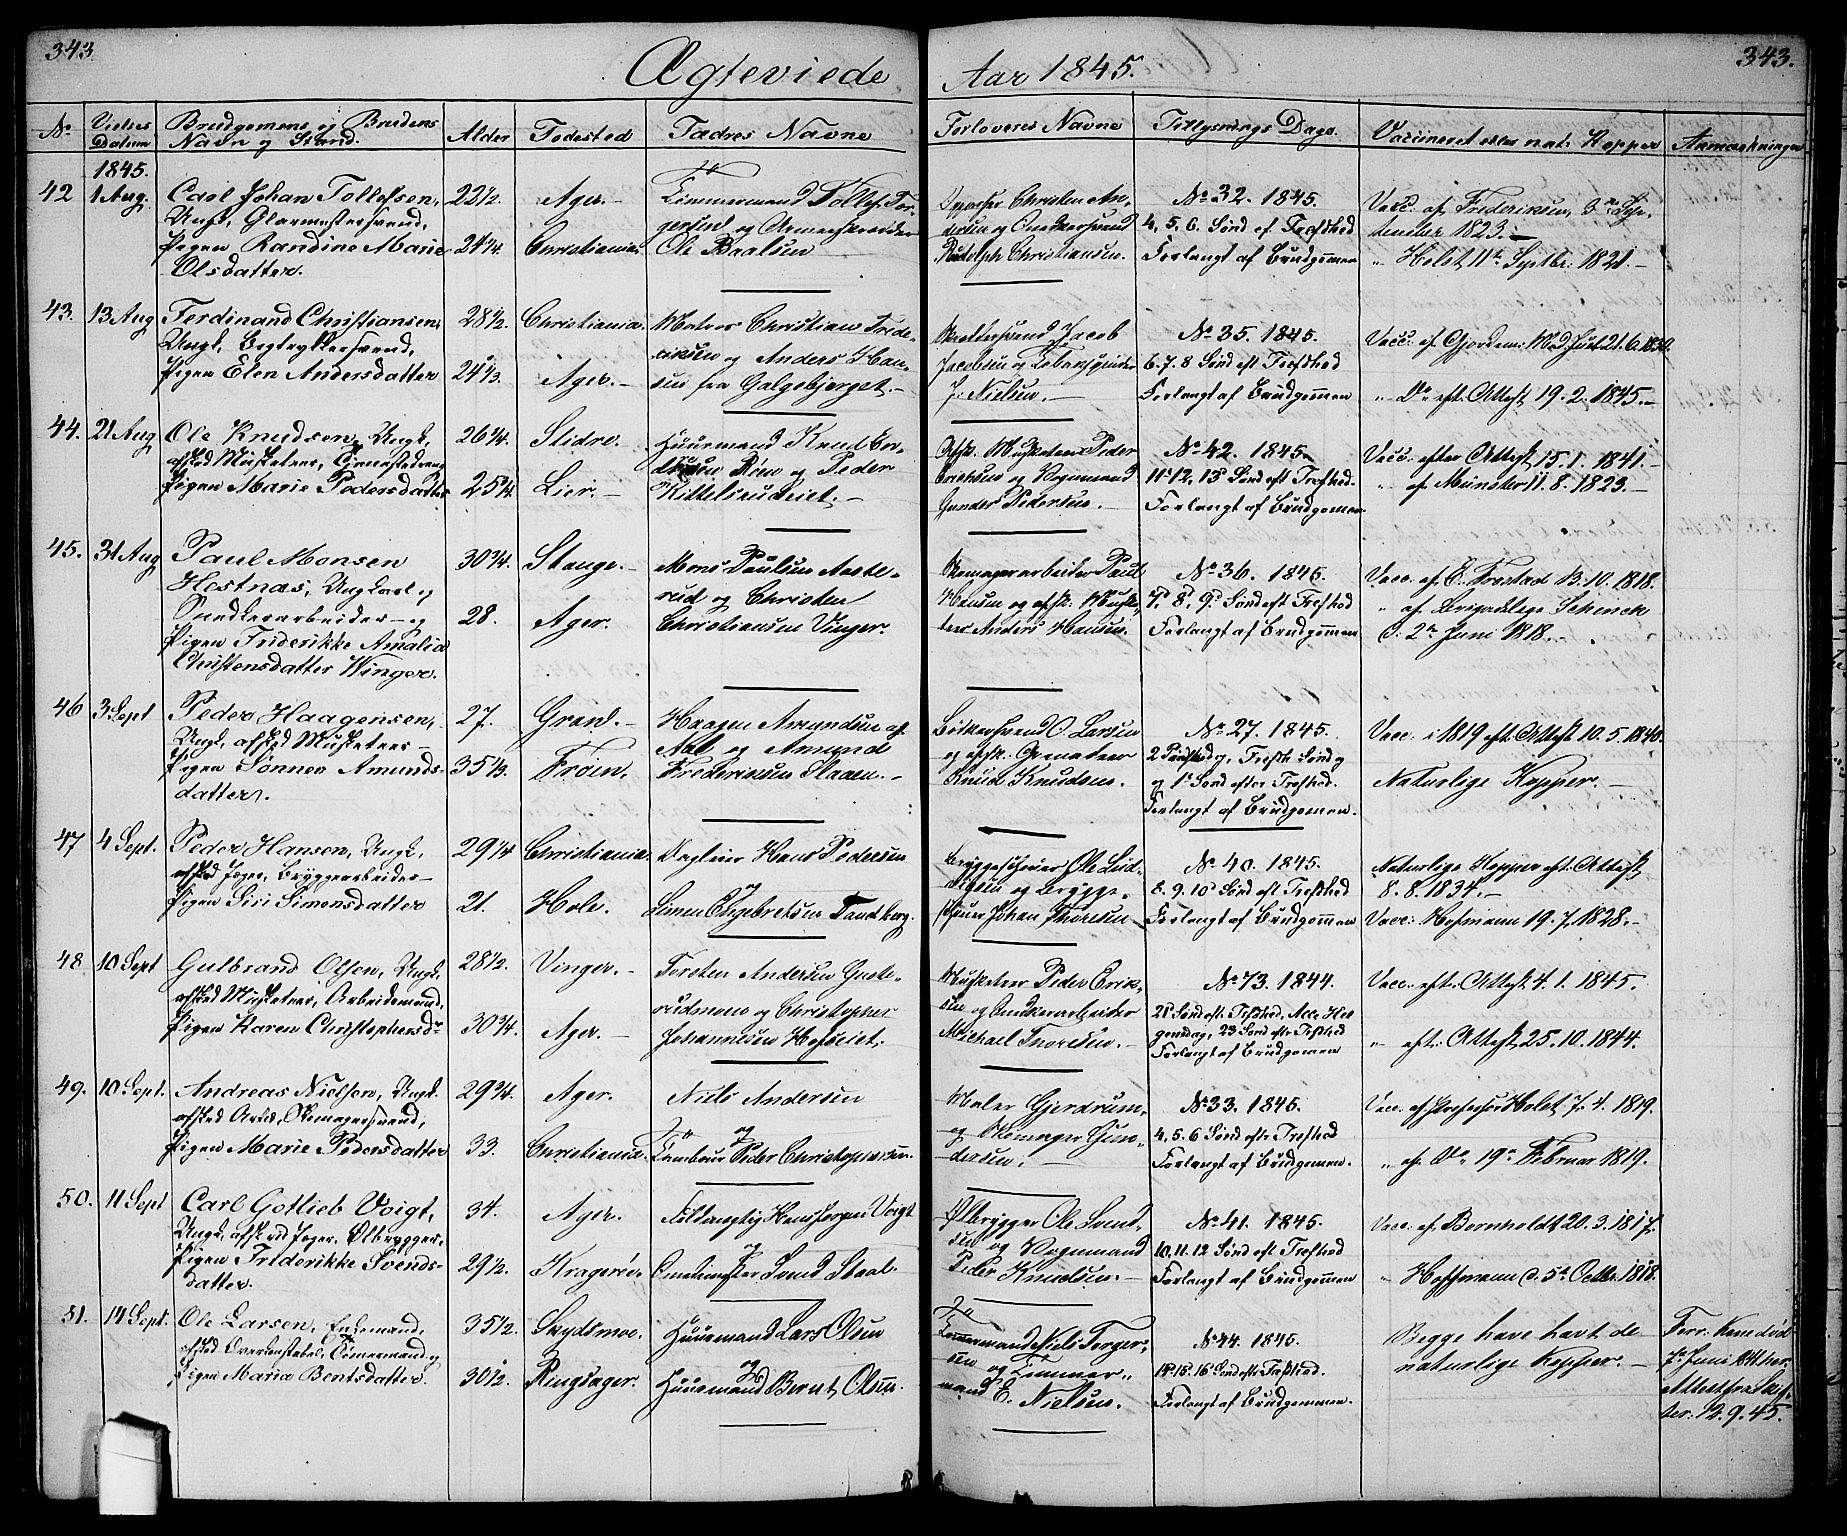 343
343.
Ægteviede
Aar 1845.
No
Vielses Datum
Brudgomens og Brudens Navn og Stand.
Alder
Fødested
Fædres Navne
Forloveres Navne
Tillysnings Dage
Vaccineret eller nat: Kopper
Anmærkninger
1845.
42
1 Aug.
Carl Johan Tollefsen,
Ungk, Glarmestersvend,
Pigen Randine Marie
Olsdatter.
22½.
24¼.
Ager.-
Christiania.
Tømmermand Tollef Tor-
gersen og Armeeskræder
Ole Baalsen
Opvarter Christen An-
dersen og Snedkersvend
Rudolph Christiansen.
No 32. 1845.
4, 5, 6. Sønd ef Trefoldhed
Forlangt af Brudgommen
Vacc. af Frederiksen, 3de Sep-
tember 1823.
" Holst 11te Septbr: 1821.-
43.
13 Aug
Ferdinand Christiansen,
Ungk, Bogtrykkersvend,
Pigen Elen Andersdatter
28½.
24⅓.
Christiania.
Ager.-
Matros Christian Frede-
riksen og Anders Han-
sen fra Galgebjerget.-
Jacob
Jacobsen og
J. Nielsen.-
No 35. 1845.
6. 7. 8 Sønd eft Trefoldhed
Forlangt af Brudgommen
Vacc. af Gjordem: 21. 6. 1830.
" Do eft. Attest 19. 2. 1845.-
44.
21 Aug
Ole Knudsen, Ungk,
afsked Musketeer,
Pigen Marie Pedersdatter
26¼.
25¼
Slidre.
Lier.-
Huusmand Knud En-
dresen Røen og Peder
Kittelseneiet.-
Afsk. Musketeer Peder
Erichsen og Vognmand
Gunder Pedersen.-
No 42. 1845.
11. 12, 13 Sønd eft Trefhed.
Forlangt af Brudgommen
Vacc. efter Attest 15. 1. 1841.-
" af Münster 11. 8. 1823.-
45.
31 Aug
Paul Monsen
Hestnæs, Ungkarl og
Snedkerarbeider - og
Pigen Friderikke Amalia
Christensdatter Winger.
30¼.
28.
Stange.-
Ager.
Mons Paulsen Aaste-
rud og Christen
Christiansen Vinger.
Skomagerarbeider Paul
Hansen og afsk. Muske-
teer Anders Hansen.
No 36. 1845.
7, 8, 9 Sønd eft Trefhed
Forlangt af Brudgommen
Vacc. af E. Frestad 13. 10. 1818.
" af Brigadelæge Schenck
d. 2den Juni 1818.-
46
3 Sept
Peder Haagensen,
Ungk, afsked Musketeer -
Pigen Sønnev Amunds-
datter.
27.
35⅓.
Gran.-
Frøen,
Haagen Amundsen af
Aal og Amund
Frederiksen Slaaen.-
Bødkersvend O. Larsen
og afsk. Grenadeer
Knud Knudsen.
No 27. 1845.
2 Pindsedag, Trefh Sønd
og 1ste Sønd efter Trefhed.
Forlangt af Brudgommen.
Vacc. i 1819 eft. Attest 10. 5. 1840.
Naturlige Kopper.-
47
4 Sept.
Peder Hansen, Ungk,
afsked Jæger, Bryggearbeider -
Pigen Siri Simonsdatter
29¼
21.
Christiania.
Hole.
Dagleier Hans Pedersen
og
Simen Engebretsen Tandberg.
Bryggeschouer Ole Lud-
vigsen og Brygge-
schouer Johan Thoresen.
No 40. 1845.
8. 9. 10 Sønd eft Trefhed
Forlangt af Brudgommen
Naturlige Kopper eft. Attest
8. 8. 1834.-
Vacc: Hofmann 19. 7. 1828.-
48
10 Sept
Gulbrand Olsen, Ungk,
afsked Musketeer, Arbeidsmand,
Pigen Karen Christophersdr
28½.
30¾.
Vinger.-
Ager.-
Torsten Andersen Gaste-
rudmoen og Christopher
Johannesen Hofseiet.
Musketeer Peder Erik-
sen og Snedkerarbeider
Michael Thoresen.-
No 73. 1844.
21 Sønd eft Trefhed, Alle Hel-
gensdag, 23 Sønd eft Trefhed
Forlangt af Brudgommen
Vacc. eft. Attest 4. 1. 1845.
" eft. Attest 25. 10. 1844.
49.
10 Sept.
Andreas Nielsen, Ungk.
afsked Artil, Skomagersvend,
Pigen Marie Pedersdatter
29¾.
33.
Ager.
Christiania.
Niels Andersen
og
Tambour Peder Christophersen.
Maler Gjerdrum-
og Skomager Gun-
dersen.-
No 33. 1845.
4, 5, 6 Sønd efter Trefhed
Forlangt af Brudgommen.
Vacc. af Professor Holst 7. 4. 1819.
" af Do 19de Februar 1819.
50.
11 Sept
Carl Gotlieb Voigt,
Ungk, afsked Jæger, Ølbrygger,
Pigen Friderikke Svends-
datter.
34.
29½.
Ager.
Kragerøe.
Fuldmægtig Hans Jørgen Voigt
og
Snedkermester Svend Staal.
Ølbrygger Ole Svend-
sen og Vognmand
Peder Knudsen.-
No 41. 1845.
10, 11. 12 Sønd eft Trefhed
Forlangt af Brudgommen
Vacc. af Bornholdt 20. 3. 1817.
" Hoffmann d. 5te Octbr. 1818.
51.
14 Sept.
Ole Larsen, Enkemand,
afsked Overkonstabel, Tømermand og
Pigen Maria Bentsdatter.
35½.
30½.
Skydsmoe.
Ringsager.
Huusmand Lars Olsen
og
Huusmand Bernt Olsen.
Tømmermand Niels Torger-
sen og Tømmer-
mand E. Nielsen.
No 44. 1845.
14. 15. 16 Sønd eft Trefhed.
Forlangt af Brudgommen.
Begge have havt de
naturlige Kopper.-
Forr. Kone død
7de Juni 1844 her.
Attest fra Skif-
ter. 12. 9. 45.